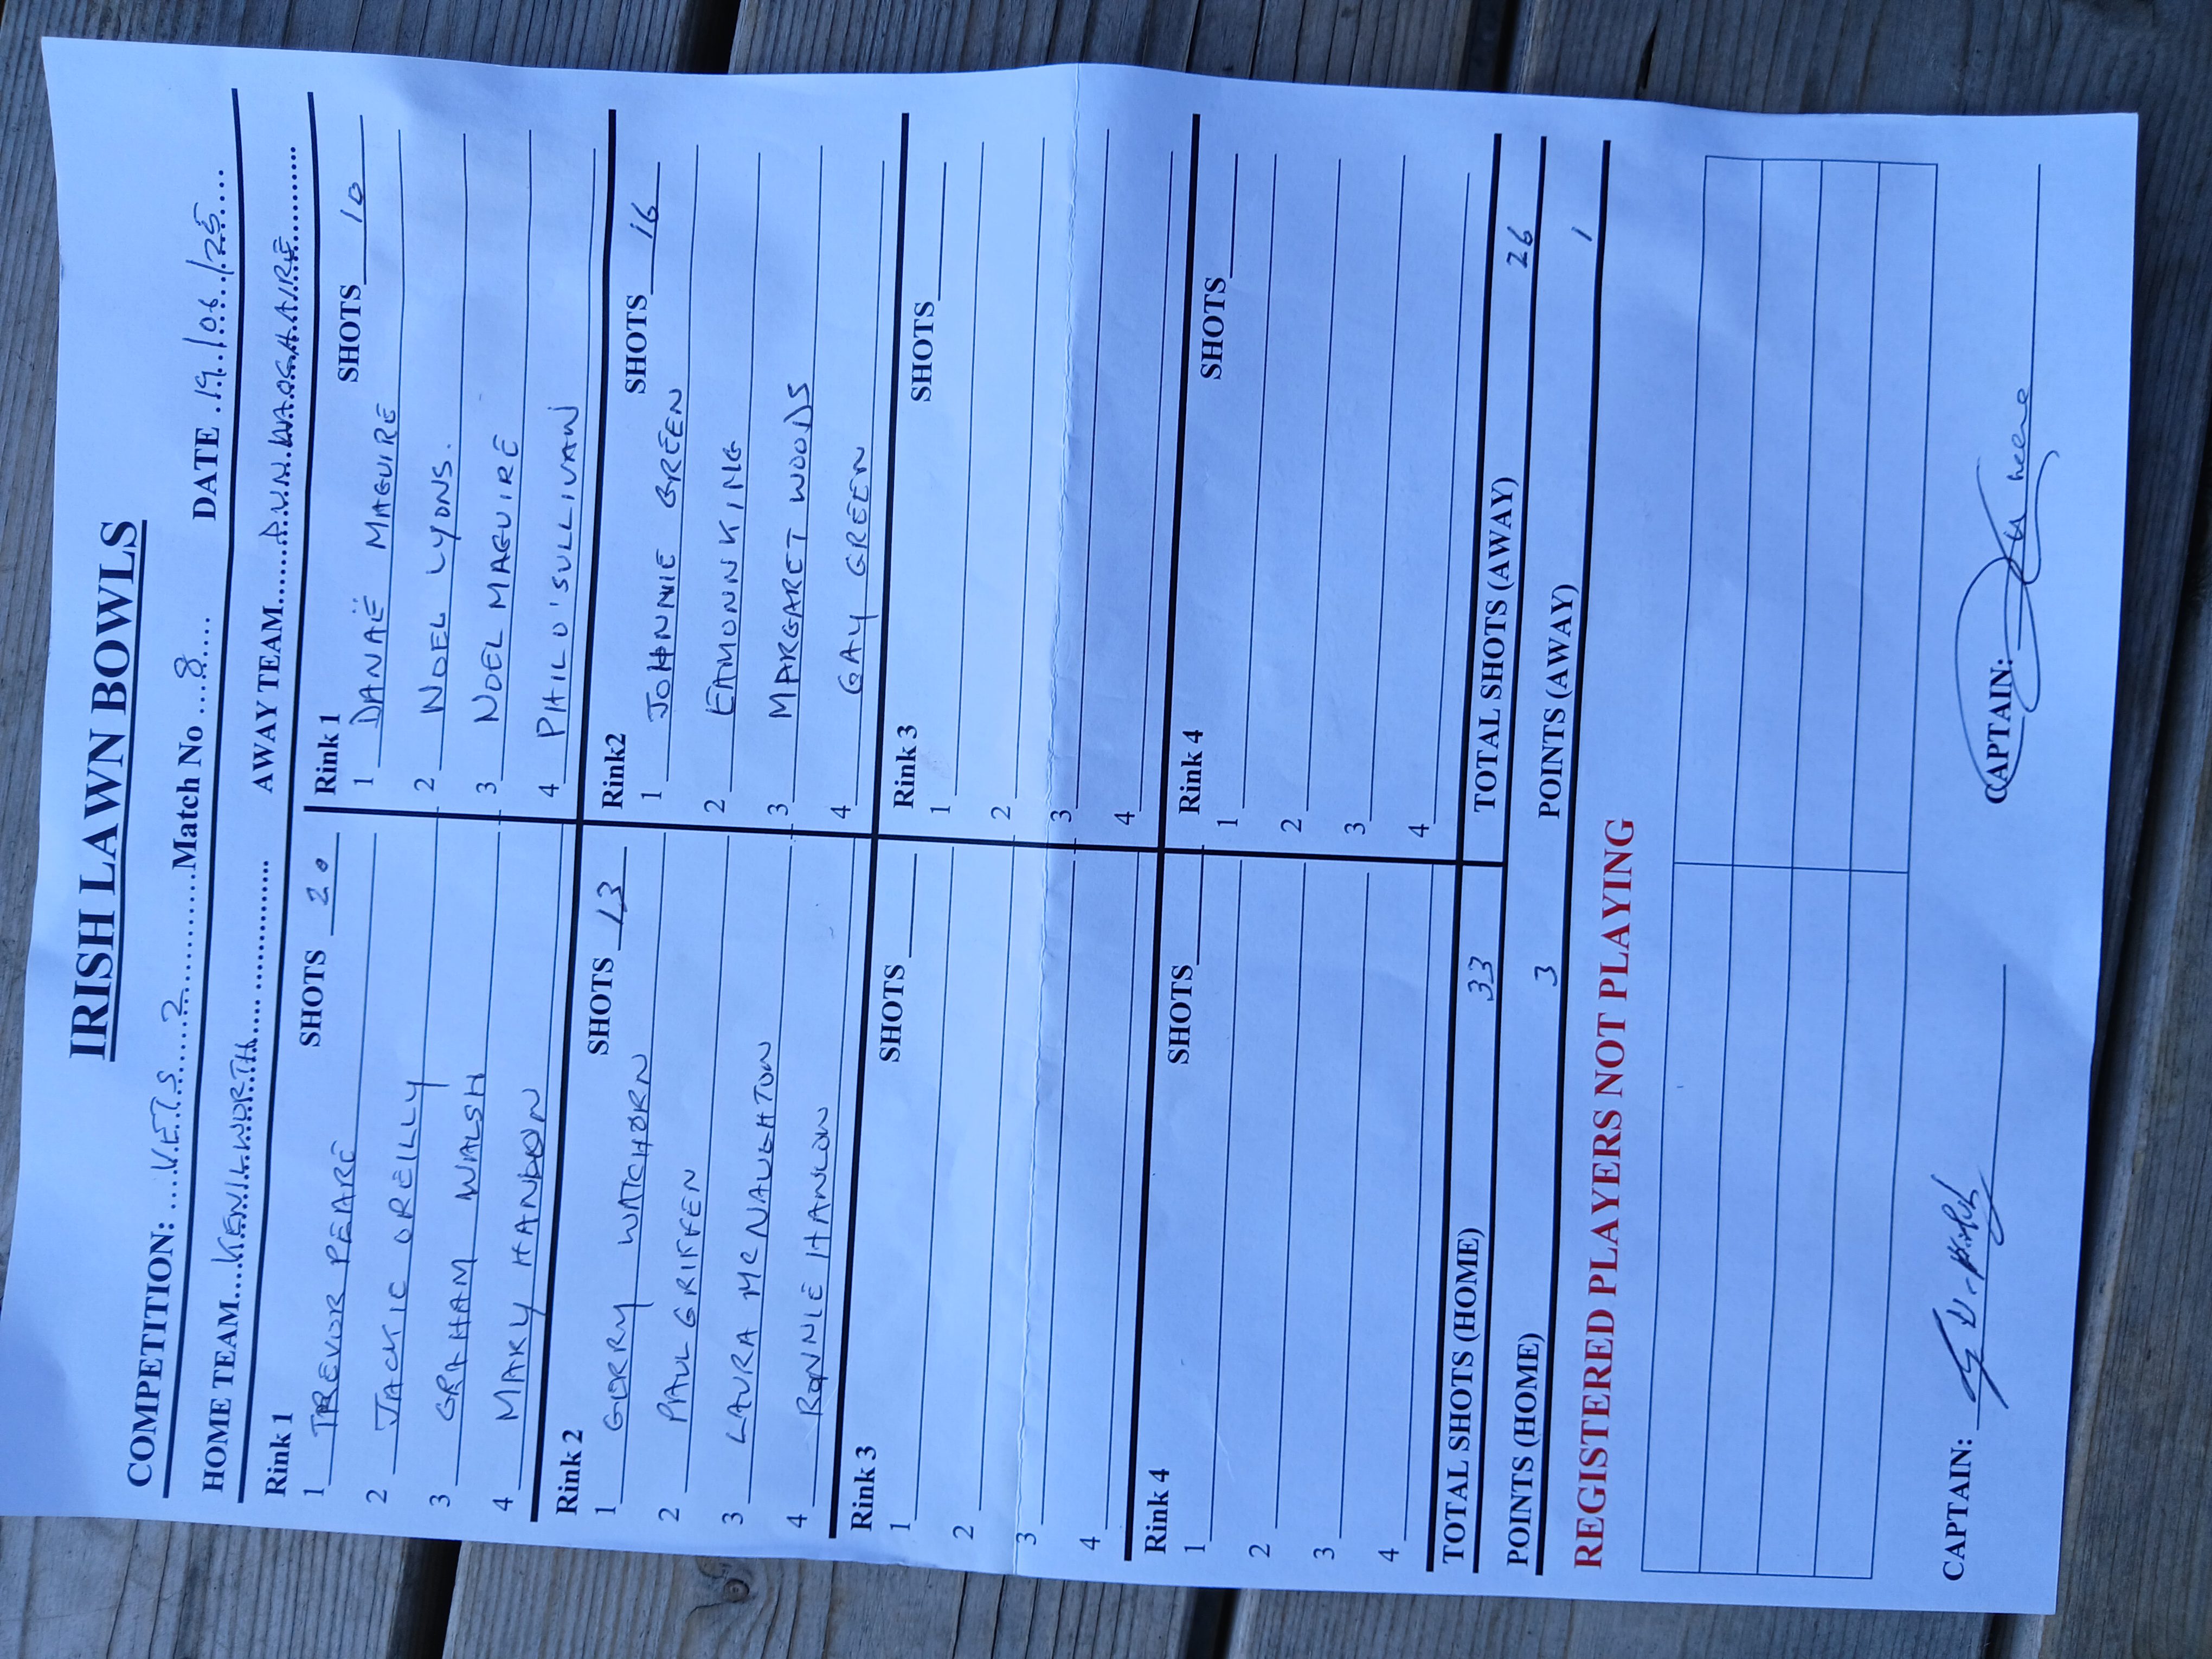 IRISH LAWN BOWLS
COMPETITION: ....V.E.T.S......2..............Match No ...8.....  DATE .19./.06./25....
HOME TEAM...KENILWORTH.................... AWAY TEAM......DUN LAOGHAIRE..........
Rink 1 SHOTS 20 Rink 1 SHOTS 10
1 TREVOR PEARE 1 DANAË MAGUIRE
2 JACKIE OREILLY 2 NOEL LYONS.
3 GRAHAM WALSH 3 NOEL MAGUIRE
4 MARY HANDON 4 PHIL O'SULLIVAN
Rink 2 SHOTS 13 Rink2 SHOTS 16
1 GERRY WATCHORN 1 JOHNNIE GREEN
2 PAUL GRIFFEN 2 EAMONN KING
3 LAURA MCNAUGHTON 3 MARGARET WOODS
4 RONNIE HANLON 4 GAY GREEN
Rink 3 SHOTS Rink 3 SHOTS
1 1
2 2
3 3
4 4
Rink 4 SHOTS Rink 4 SHOTS
1 1
2 2
3 3
4 4
TOTAL SHOTS (HOME) 33 TOTAL SHOTS (AWAY) 26
POINTS (HOME) 3 POINTS (AWAY) 1
REGISTERED PLAYERS NOT PLAYING
CAPTAIN: CAPTAIN: